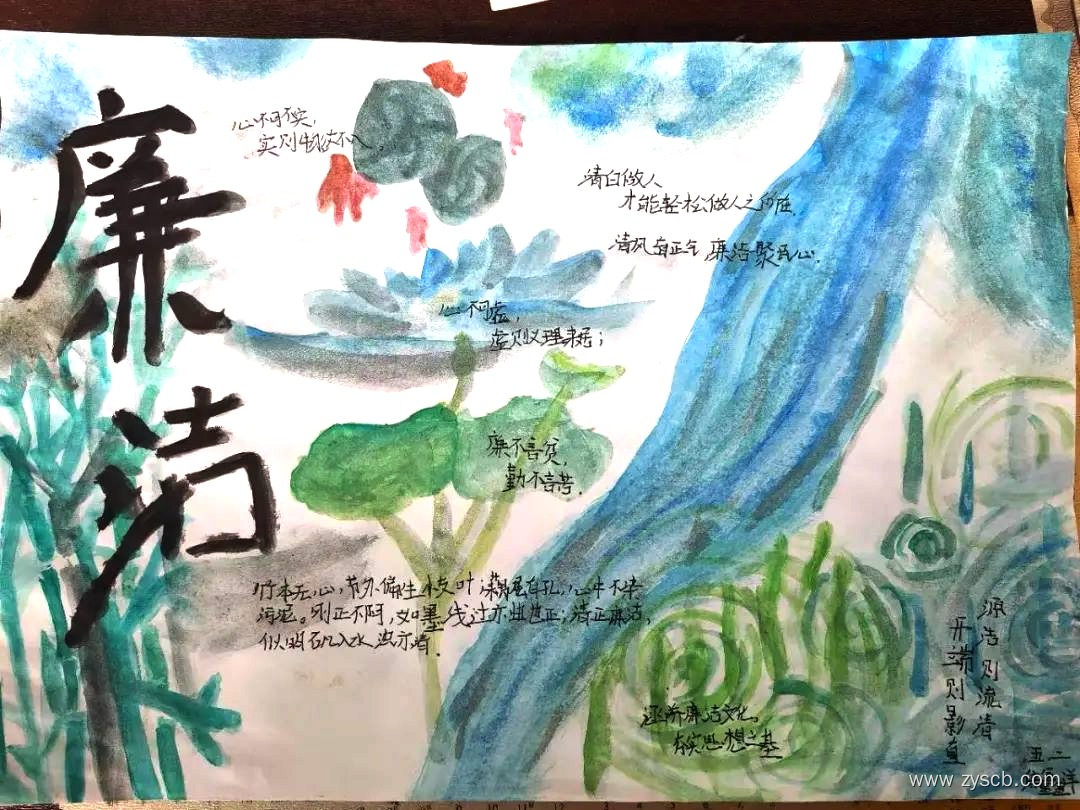 廉洁
心不可不实，
实则物欲不入。
清白做人
才能轻松做人之
清风 正气 廉洁聚民心.
心不可虚，
虚则义理来居；
廉不言贫，
勤不言苦.
竹本无心，节外偏生枝叶；藕虽有孔，心中不染
污泥。刚正不阿，如墨线过亦正；清正廉洁，
似明矾入水浊亦清.
廉洁文化，
夯实思想之基
源洁则流清
开端则影直
五二
www.zyscb.com